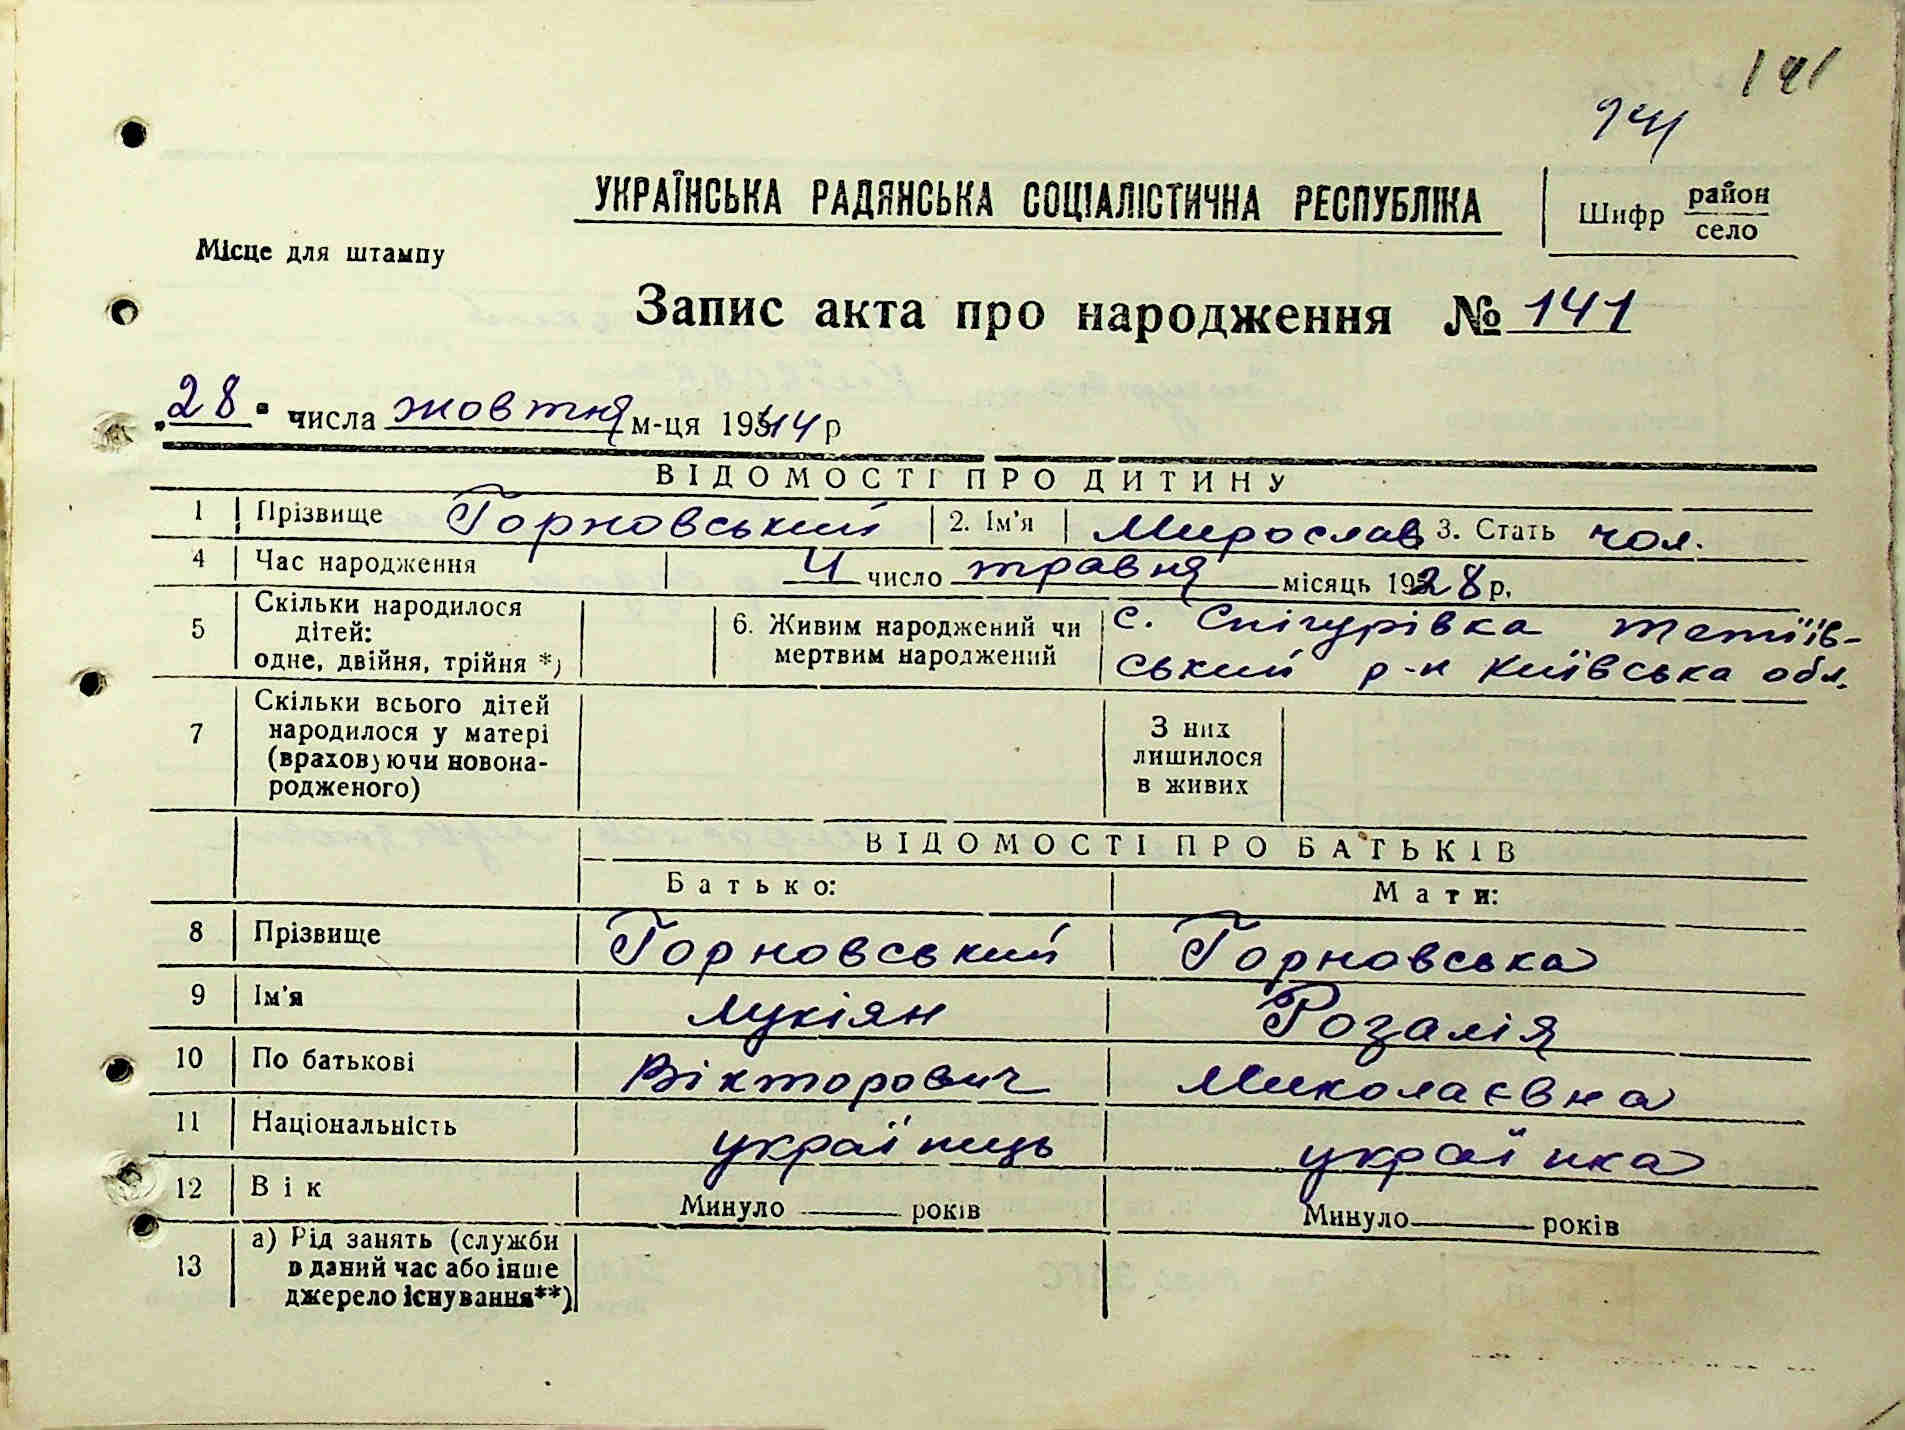 141
941
УКРАЇНСЬКА РАДЯНСЬКА СОЦІАЛІСТИЧНА РЕСПУБЛІКА
Шифр район
село
Місце для штампу
Запис акта про народження № 141
"28" числа жовтня м-ця 1944 р
ВІДОМОСТІ ПРО ДИТИНУ
1 Прізвище Горновський 2. Ім'я Мирослав 3. Стать чол.
4 Час народження 4 число травня місяць 1928 р.
5 Скільки народилося
дітей:
одне, двійня, трійня *)
6. Живим народжений чи
мертвим народжений
с. Снігурівка тетіїв-
ський р-н Київська обл.
7 Скільки всього дітей
народилося у матері
(враховуючи новона-
родженого)
З них
лишилося
в живих
ВІДОМОСТІ ПРО БАТЬКІВ
Батько: Мати:
8 Прізвище Горновський Горновська
9 Ім'я Лукіян Розалія
10 По батькові Вікторович Миколаєвна
11 Національність українець українка
12 Вік Минуло —— років Минуло —— років
13 а) Рід занять (служби
в даний час або інше
джерело існування**)